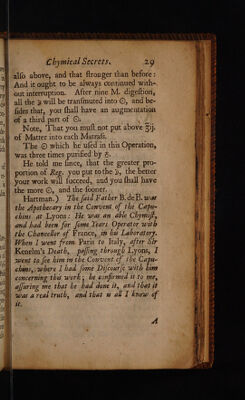 Chymical Secrets. 29
also above, and that stronger than before:
And it ought to be always continued with-
out interruption. After nine M. digestion,
all the ☽ will be transmuted into ☉, and be-
sides that, you shall have an augmentation
of a third part of ☉.
Note, That you must not put above ℥ij.
of Matter into each Matrass.
The ☉ which he used in this Operation,
was three times purified by ♁.
He told me since, that the greater pro-
portion of Reg. you put to the ☽, the better
your work will succeed, and you shall have
the more ☉, and the sooner.
Hartman.) The said Father B. de B. was
the Apothecary in the Convent of the Capu-
chins at Lyons: He was an able Chymist,
and had been for some Years Operator with
the Chancellor of France, in his Laboratory.
When I went from Paris to Italy, after Sir
Kenelm's Death, passing through Lyons, I
went to see him in the Convent of the Capu-
chins, where I had some Discourse with him
concerning this work; he confirmed it to me,
assuring me that he had done it, and that it
was a real truth, and that is all I know of
it.
A